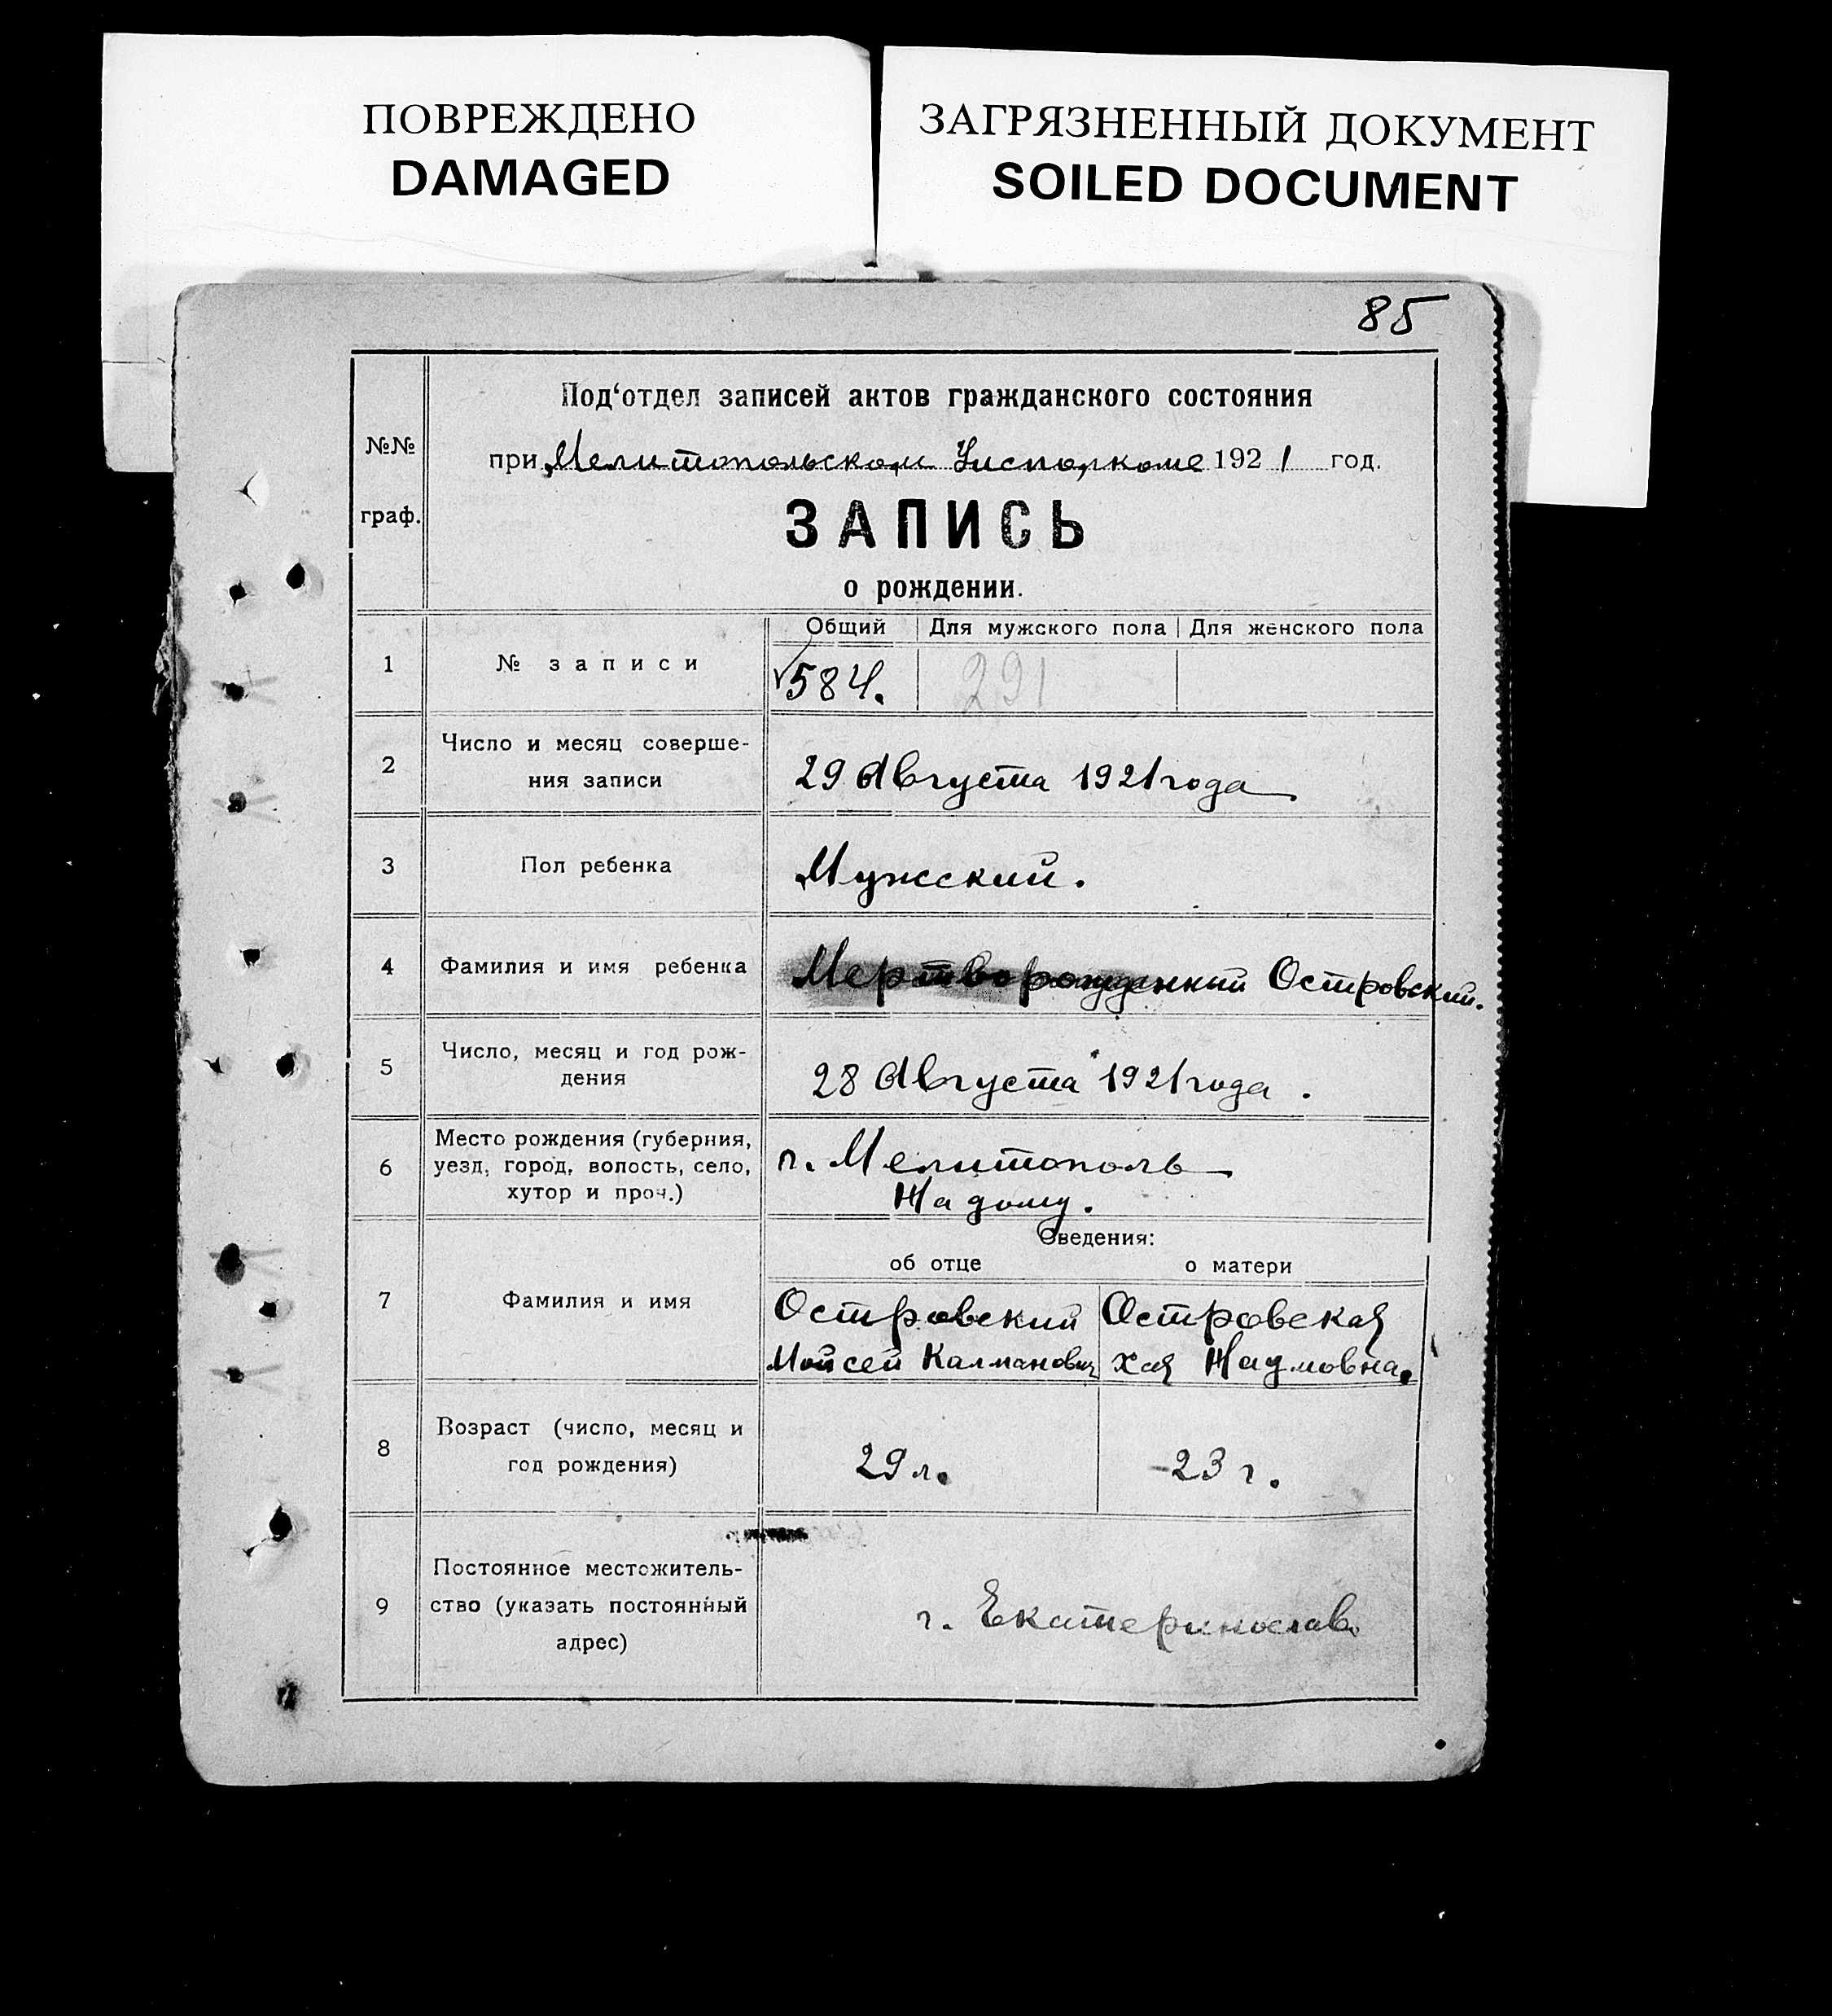 ПОВРЕЖДЕНО
DAMAGED
ЗАГРЯЗНЕННЫЙ ДОКУМЕНТ
SOILED DOCUMENT
85
№№
граф.
Под‘отдел записей актов гражданского состояния
при Мелитопольском Уисполкоме 192 1 год.
ЗАПИСЬ
о рождении.
Общий Для мужского пола Для женского пола
1 № записи √584. 291
2 Число и месяц соверше-
ния записи
29 Августа 1921 года
3 Пол ребенка Мужский.
4 Фамилия и имя ребенка Мертворожденный Островский.
5 Число, месяц и год рож-
дения
28 Августа 1921 года.
6 Место рождения (губерния,
уезд, город, волость, село,
хутор и проч.)
г. Мелитополь
На дому.
Сведения:
об отце о матери
7 Фамилия и имя
Островский
Мойсей Калманович
Островская
Хая Наумовна.
8 Возраст (число, месяц и
год рождения)
29 л. 23 г.
9 Постоянное местожитель-
ство (указать постоянный
адрес)
г. Екатеринослав.